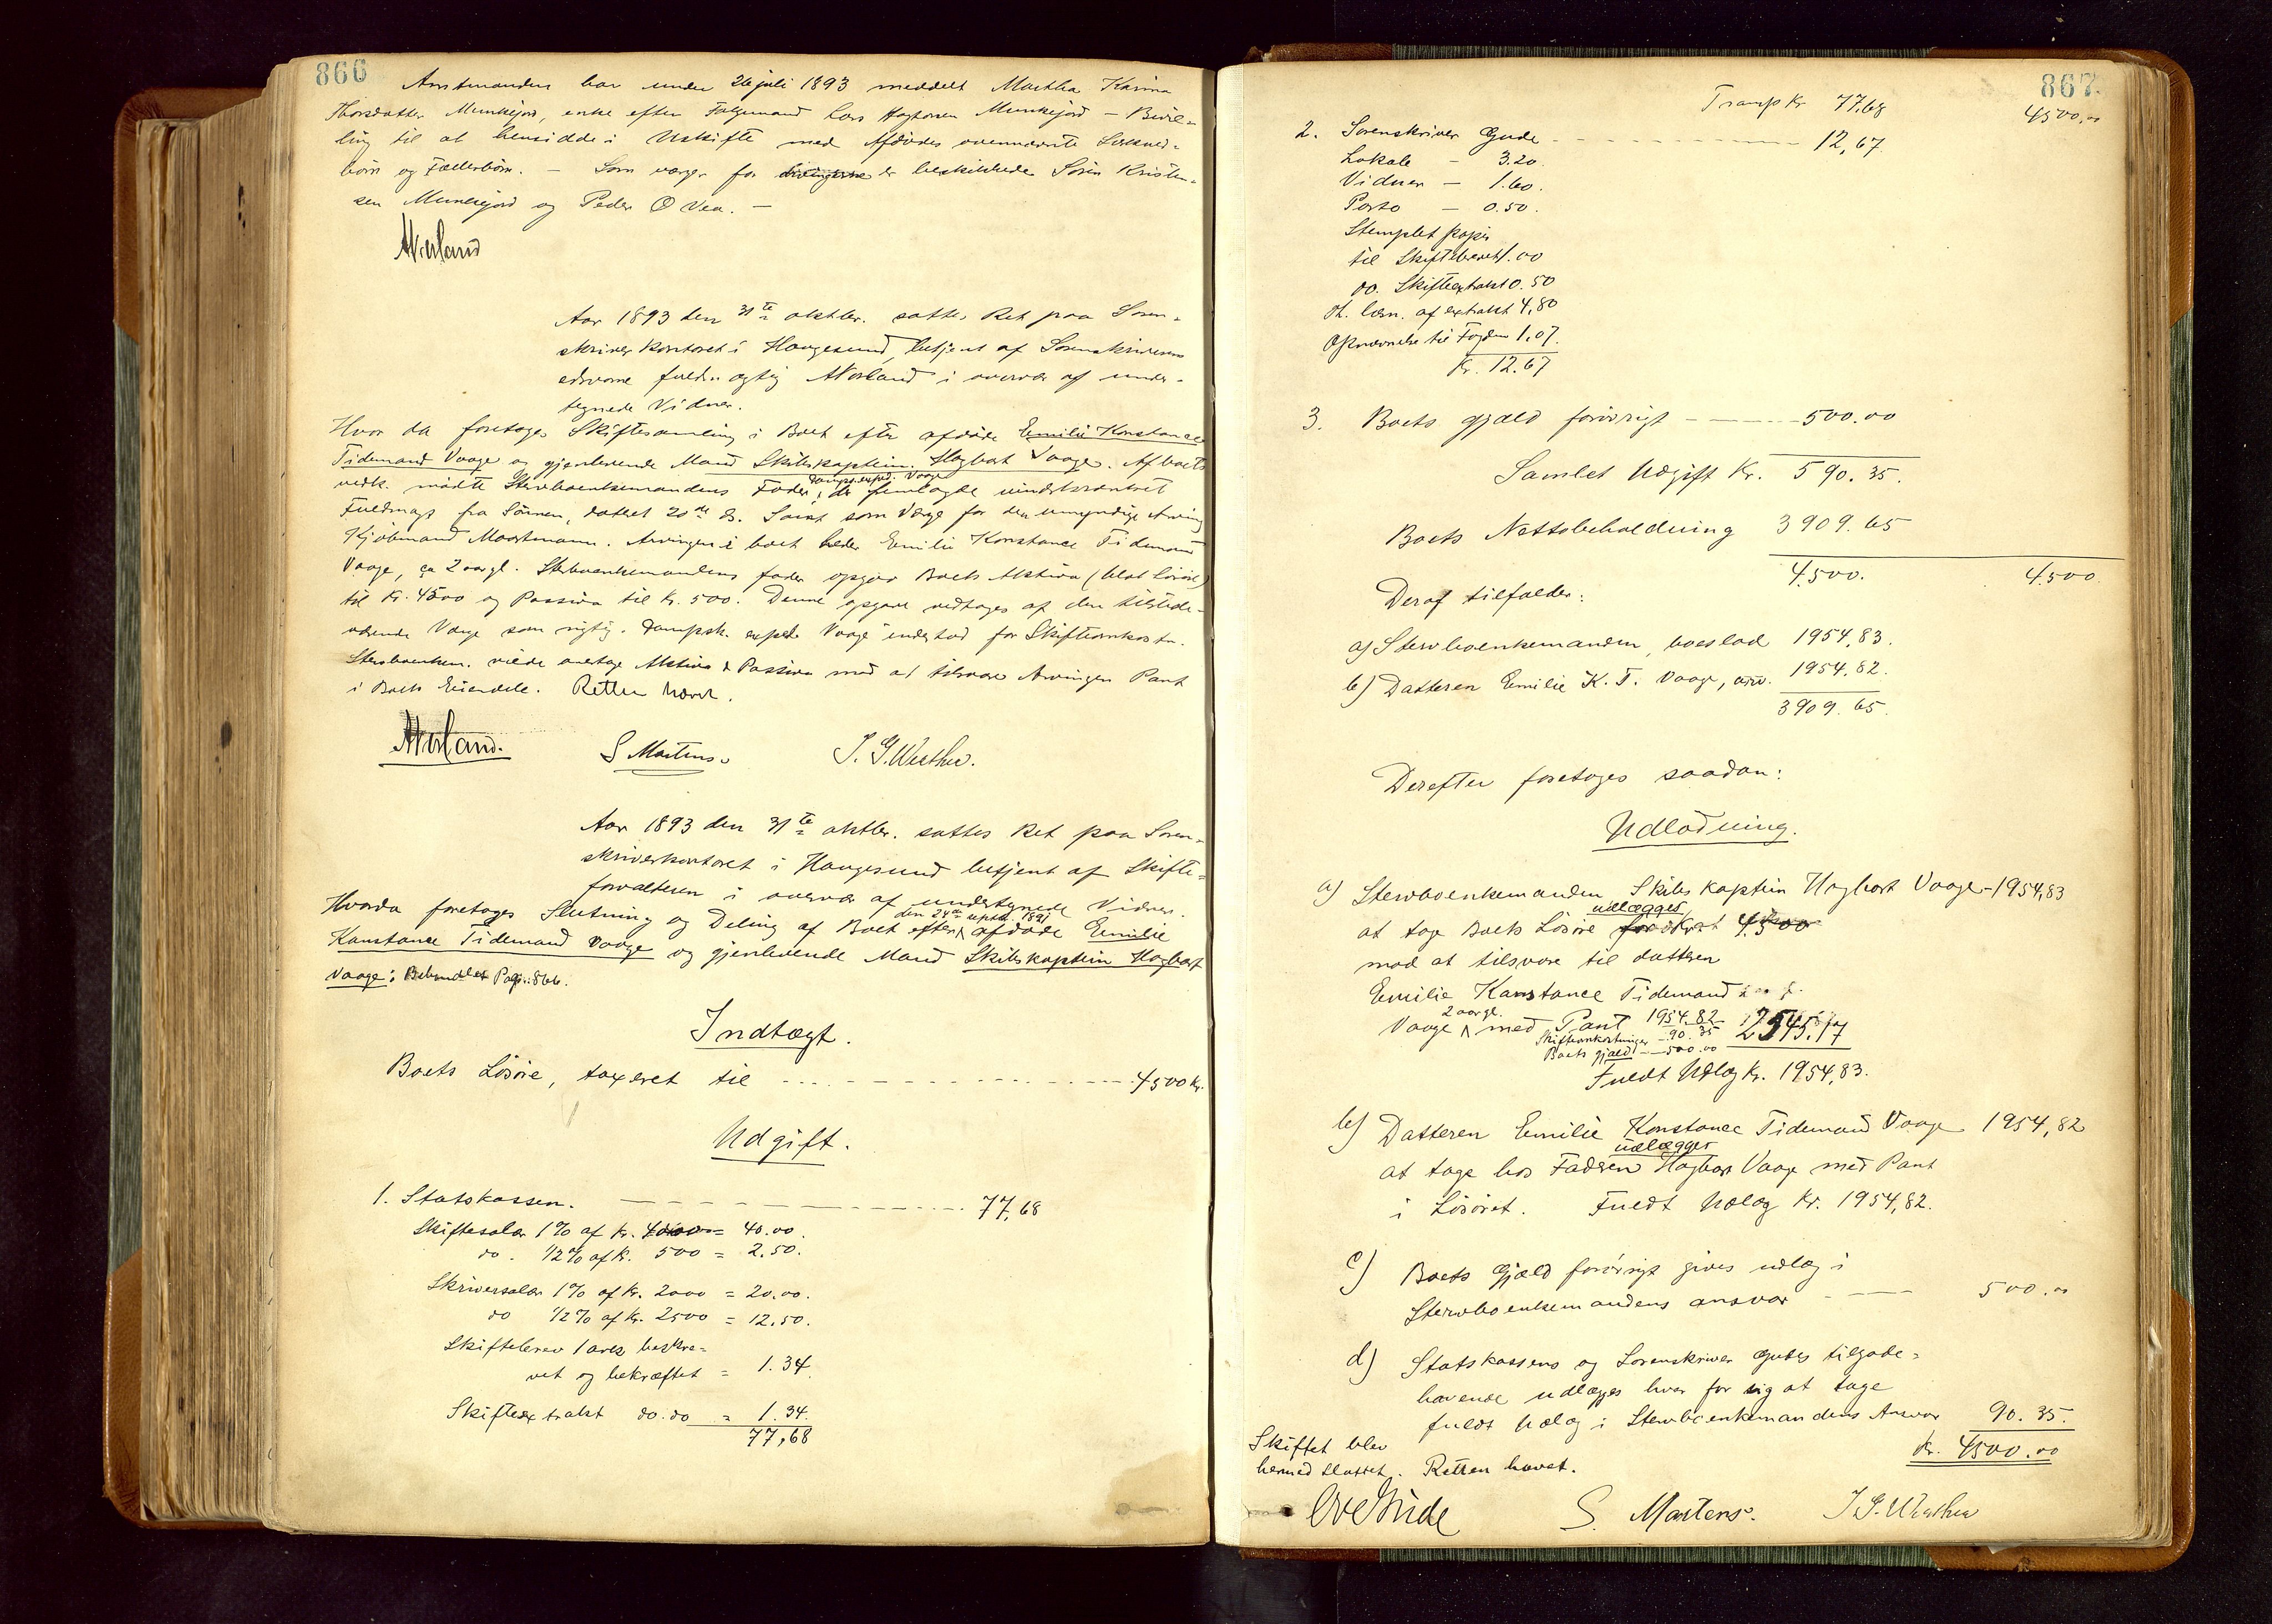 866
Amtmanden har under 26 juli 1893 meddelt Martha Karina
Thorsdatter Munkejord, enke efter Folgemand Lars Munkejord – Bevil-
ling til at hensidde i Uskifte med Afdødes ovennævnte Særkuld-
børn og Fællesbørn. – Som værger for er beskikkede Sören Kristen-
sen Munkejord og Peder O Vea. –
AVorland
Aar 1893 den 31te oktbr. sattes Ret paa Soren-
skriverkontoret i Haugesund, betjent af Sorenskriverens
edsvorne fuldmægtig AVorland i overvær af under-
tegnede Vidner.
Hvor da foretoges Skiftesamling i Boet efter afdøde Emilie Konstance
Tidemand Vaage og gjenlevende Mand Skibskaptein Hagbart Vaage. Af boets
vedk. mødte Stervboenkemandens Fader, dampsk.exped. Vaage der fremlagde uindskrænket
Fuldmagt fra Sönnen, dateret 20de ds. Samt som Værge for den umyndige Arving
Kjöbmand Maartmann. Arvingen i boet heder Emilie Konstance Tidemand
Vaage, ca 2 aar gl. Sterboenkemandens fader opgav Boets Aktiva (blot løsøre)
til Kr. 4500 og Passiva til Kr. 500. Denne opgave vedtoges af den tilstede-
værende Værge som rigtig. Dampsk. exped. Vaage indestod for Skifteomkostn.
Stervboenkem. vilde overtage Aktiva & Passiva mod at tilsvare Arvingen Pant
i Boets Eiendele. Retten hævet.
AVorland. S Martens. J. G. Westher.
Aar 1893 den 31te oktbr. sattes Ret paa Soren-
skriverkontoret i Haugesund betjent af Skifte-
forvalteren i overvær af undertegnede Vidner.
Hvorda foretoges Slutning og Deling af Boet efter den 24de septbr. 1891 afdøde Emilie
Konstance Tidemand Vaage og gjenlevende Mand Skibskaptein Hagbart
Vaage: Behandlet Pag: 866.
Indtægt.
Boets Lösöre, taxeret til 4500 Kr.
Udgift.
1. Statskassen. 77,68
Skiftesalær 1% af Kr. 4000 = 40.00.
do. 1/2% af Kr. 500 = 2.50.
Skriversalær 1% af Kr. 2000 = 20.00.
do 1/2% af Kr. 2500 = 12.50.
Skiftebrev 1 ark beskre-
vet og bekræftet = 1.34
Skifteextrakt do. do = 1.34.
77,68
867.
Transp Kr. 77,68 4500,00
2. Sorenskriver Gude 12,67.
Lokale – 3.20.
Vidner – 1.60.
Porto – 0.50.
Stemplet papir
til Skiftebrevet 1.00
do. Skifteextrakt 0.50
Th. læsn. af extrakt 4,80
Opnævnelse til Fogden 1.07.
Kr. 12.67
3. Boets gjæld forövrigt 500.00
Samlet Udgift Kr. 590.35.
Boets Nettobeholdning 3909.65
4500. 4500
Deraf tilfalder:
a) Stervboenkemanden, boeslod 1954,83.
b) Datteren Emilie K. T. Vaage, arv. 1954,82.
3909.65.
Derefter foretoges saadan:
Udlodning.
a) Stervboenkemanden Skibskaptein Hagbart Vaage – 1954,83
udlægges
at tage Boets Lösöre for Kr. 4500
mod at tilsvare til datteren
Emilie Konstance Tidemand
Vaage 2 aar gl. med Pant 1954.82 2545.17
Skifteomkostninger – 90.35
Boets gjæld – 500.00
Fuldt Udlæg Kr. 1954,83.
b) Datteren Emilie Konstance Tidemand Vaage 1954,82
udlægges
at tage hos Faderen Hagbart Vaage med Pant
i Lösöret. Fuldt Udlæg Kr. 1954,82.
c) Boets Gjæld forövrigt gives udlæg i
Stervboenkemandens ansvar 500.00
d) Statskassens og Sorenskriver Gudes tilgode-
havende udlægges hver for sig at tage
fuldt Udlæg i Stervboenkemandens Ansvar 90.35.
Kr. 4500.00
Skiftet blev
hermed sluttet. Retten hævet.
Ove Gude S. Martens. J. G. Westher